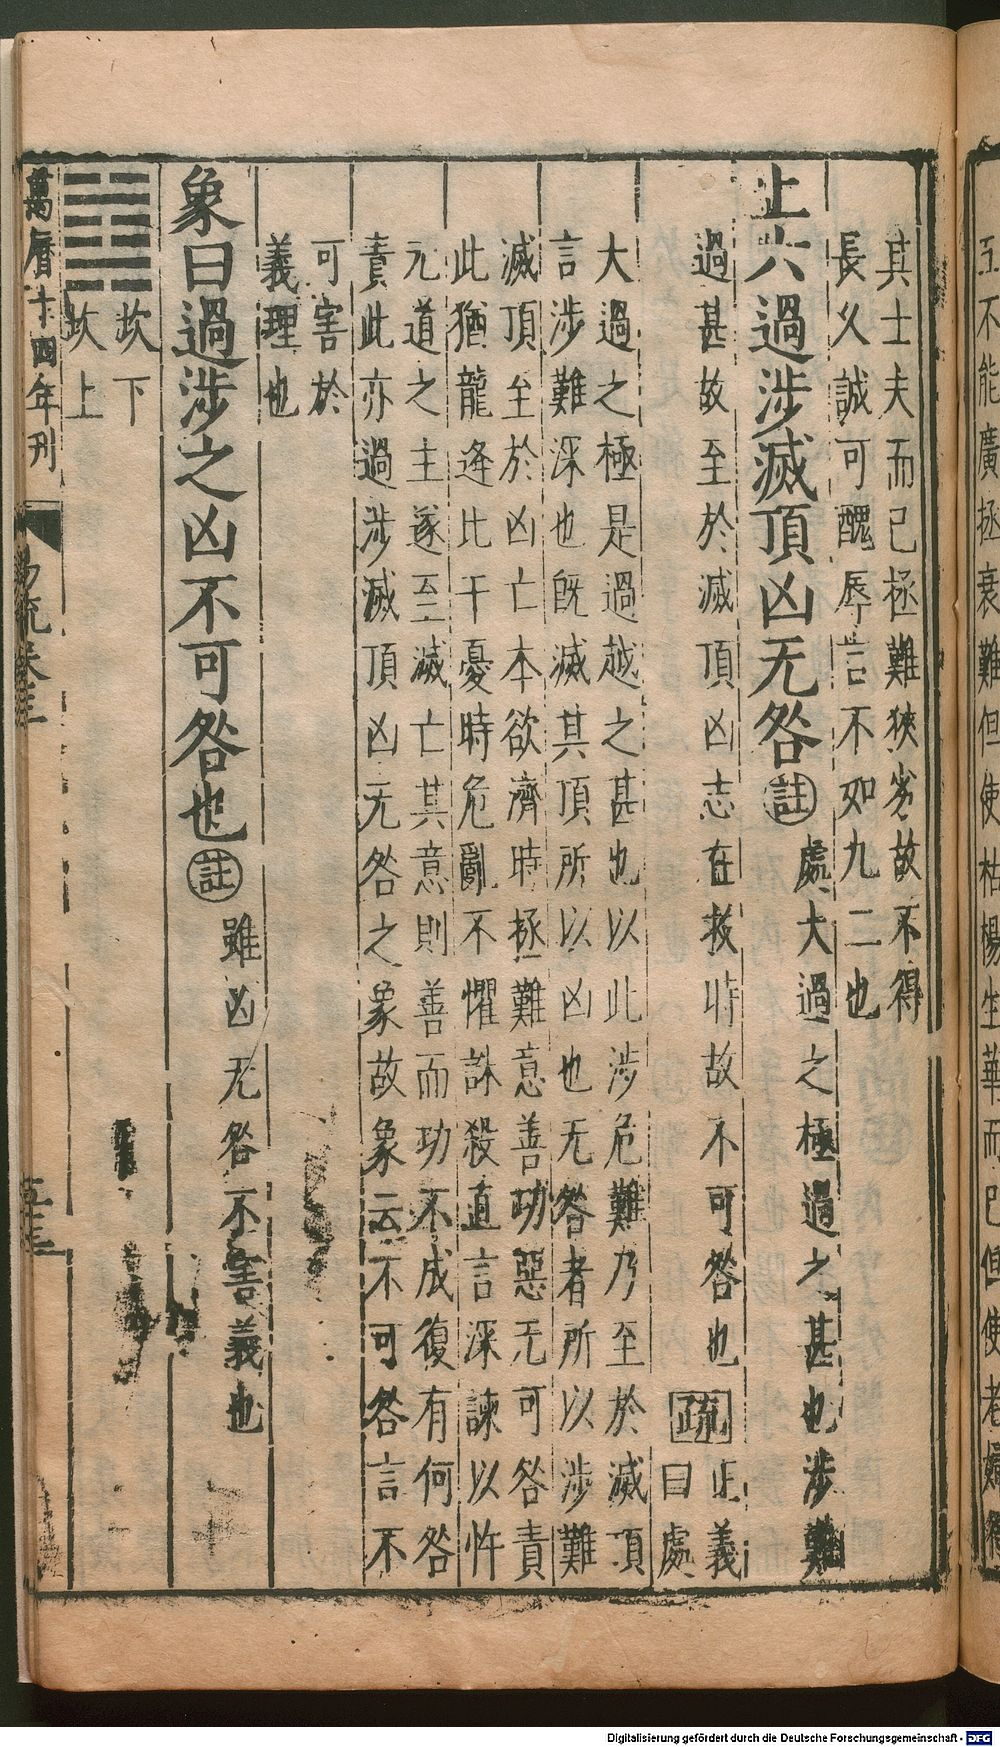 五不能廣拯衰難但使枯楊生華而已但使老婦得
其士夫而已拯難狹劣故不得
長久誠可醜辱言不如九二也
上六過涉滅頂凶无咎註處大過之極過之甚也涉難
過甚故至於滅頂凶志在救時故不可咎也疏正義
曰處
大過之極是過越之甚也以此涉危難乃至於滅頂
言涉難深也既滅其頂所以凶也无咎者所以涉難
滅頂至於凶亡本欲濟時拯難意善功惡无可咎責
此猶龍逢比干憂時危亂不懼誅殺直言深諫以忤
无道之主遂至滅亡其意則善而功不成復有何咎
責此亦過涉滅頂凶无咎之象故象云不可咎言不
可害於
義理也
象曰過涉之凶不可咎也註雖凶无咎不害義也
䷜坎下
坎上
萬曆十四年刊 易疏卷三 五十三
Digitalisierung gefördert durch die Deutsche Forschungsgemeinschaft - DFG